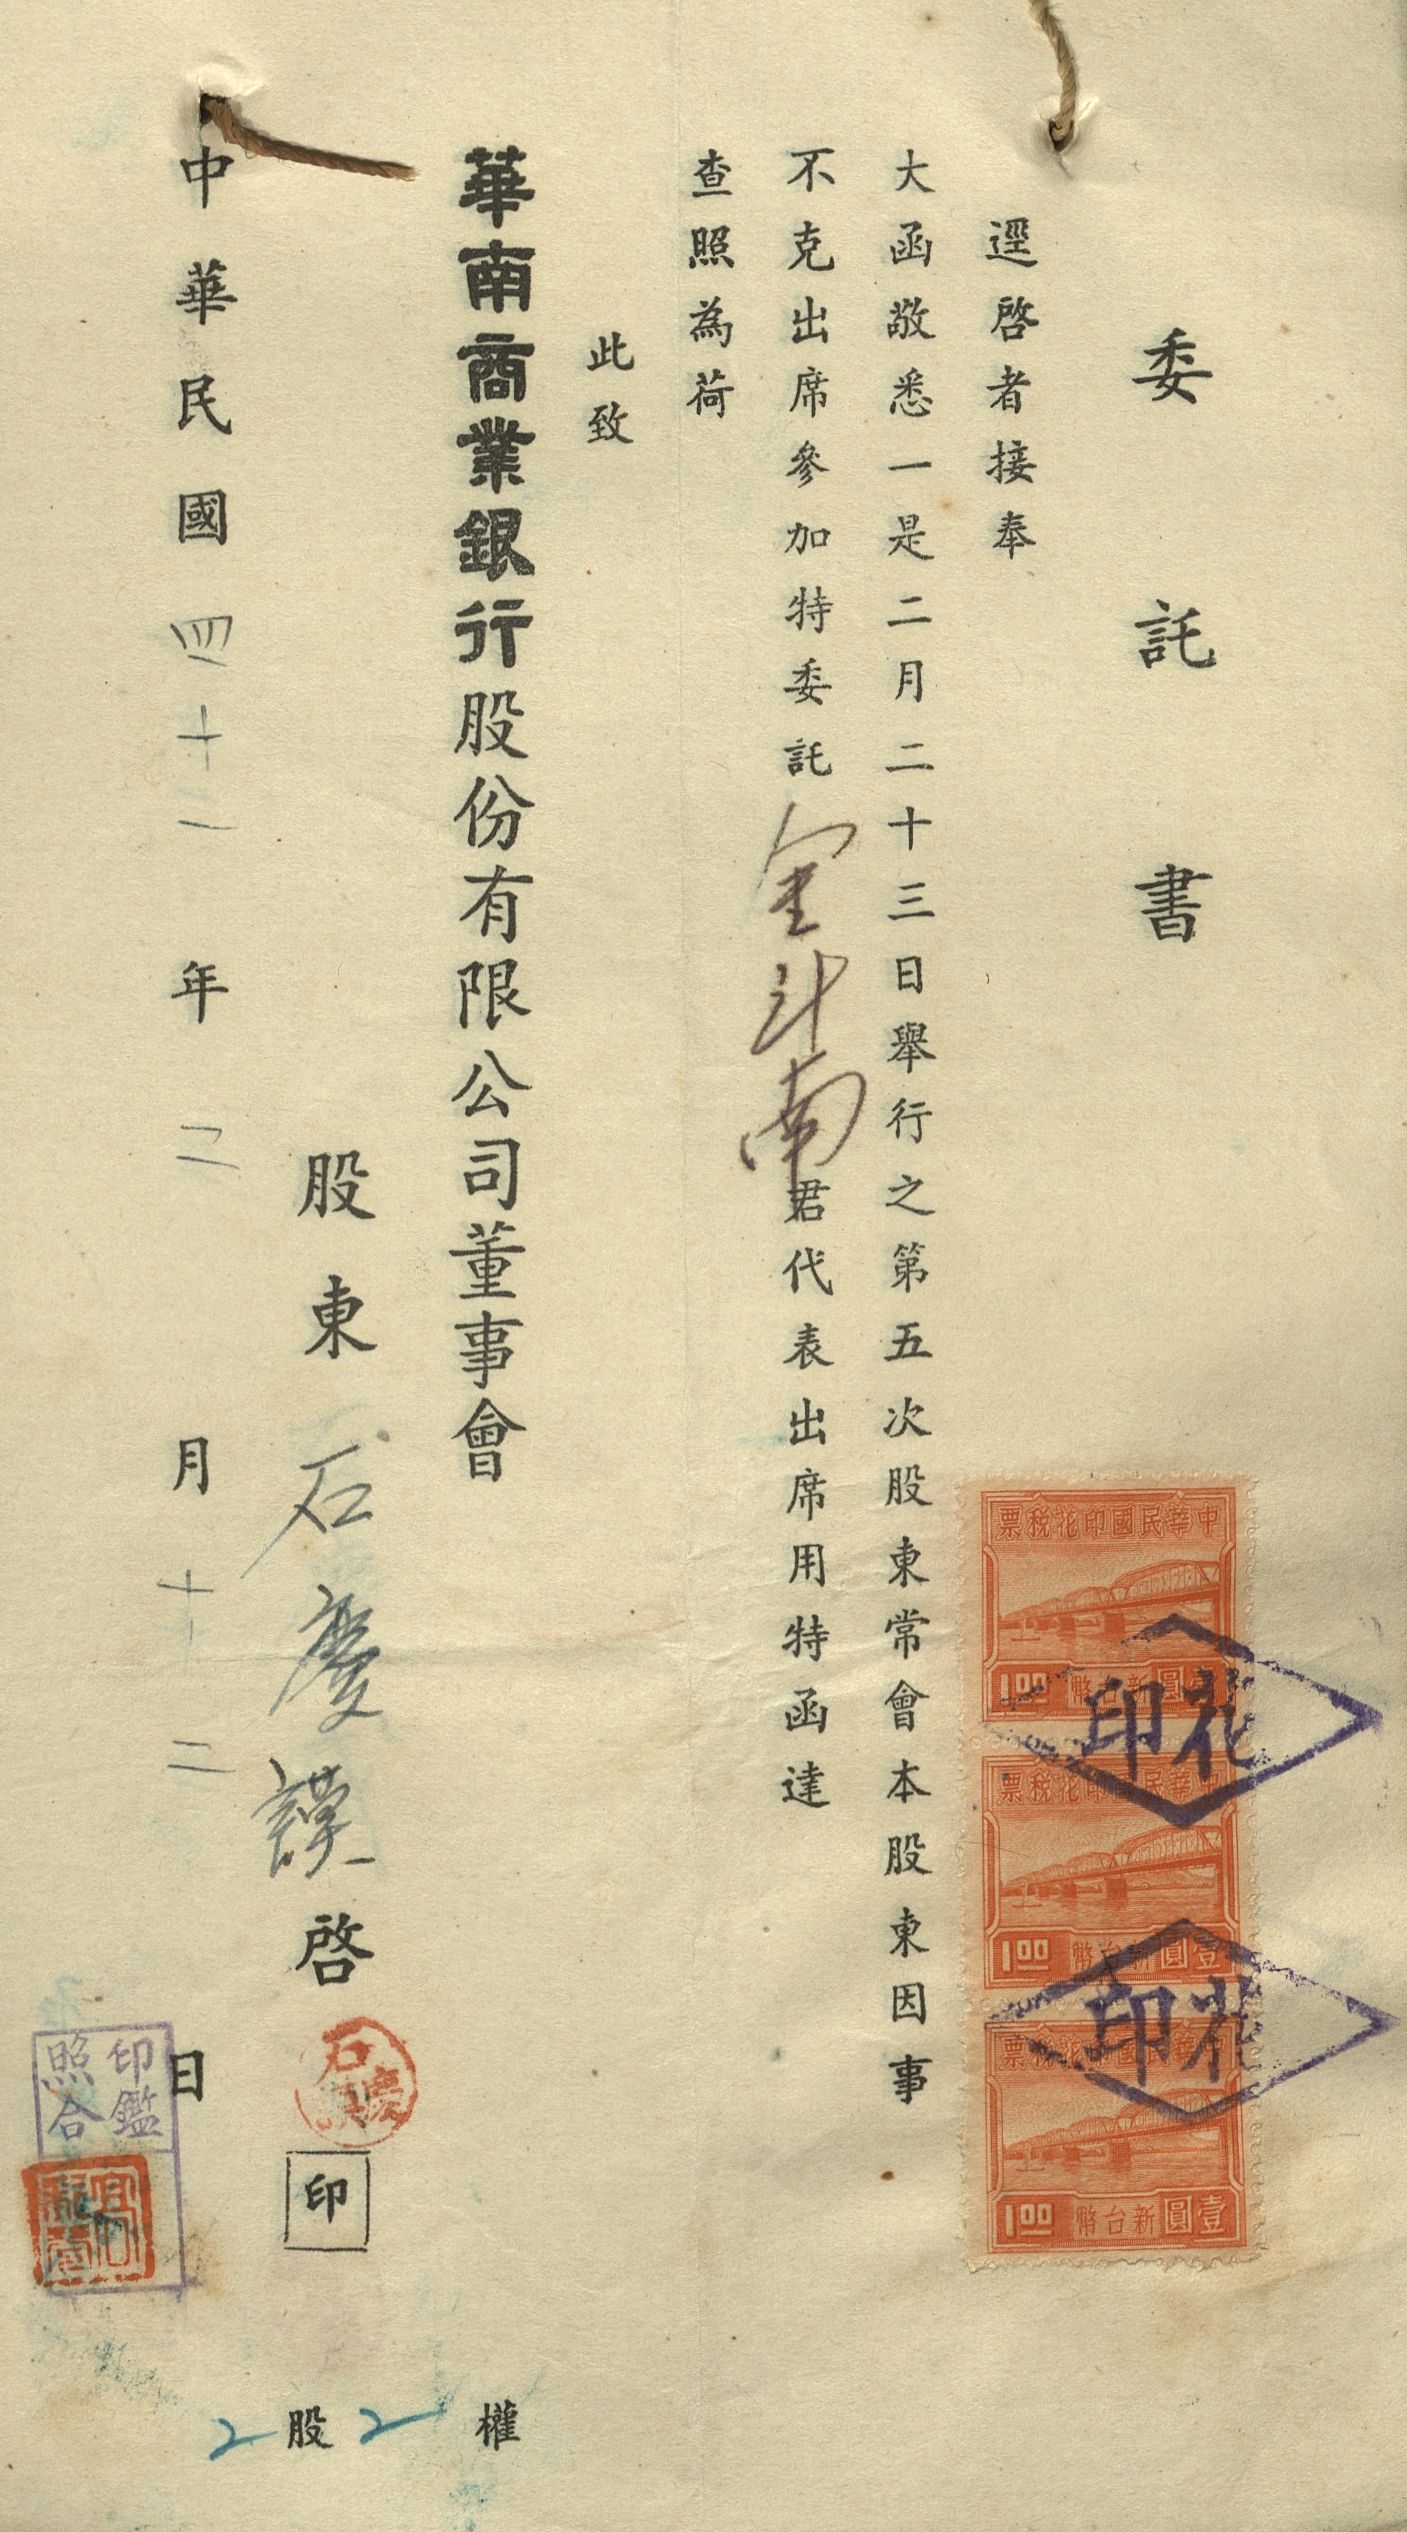 委託書
逕啓者接奉
大函敬悉一是二月二十三日舉行之第五次股東常會本股東因事
不克出席參加特委託金斗南君代表出席用特函達
查照為荷
此致
華南商業銀行股份有限公司董事會
股東石慶謨啓
石慶謨
印
中華民國四十一年二月十二日
印鑑
照合
2股2權
中華民國印花稅票
壹圓新台幣
1.00
中華民國印花稅票
壹圓新台幣
1.00
中華民國印花稅票
壹圓新台幣
1.00
印花
印花